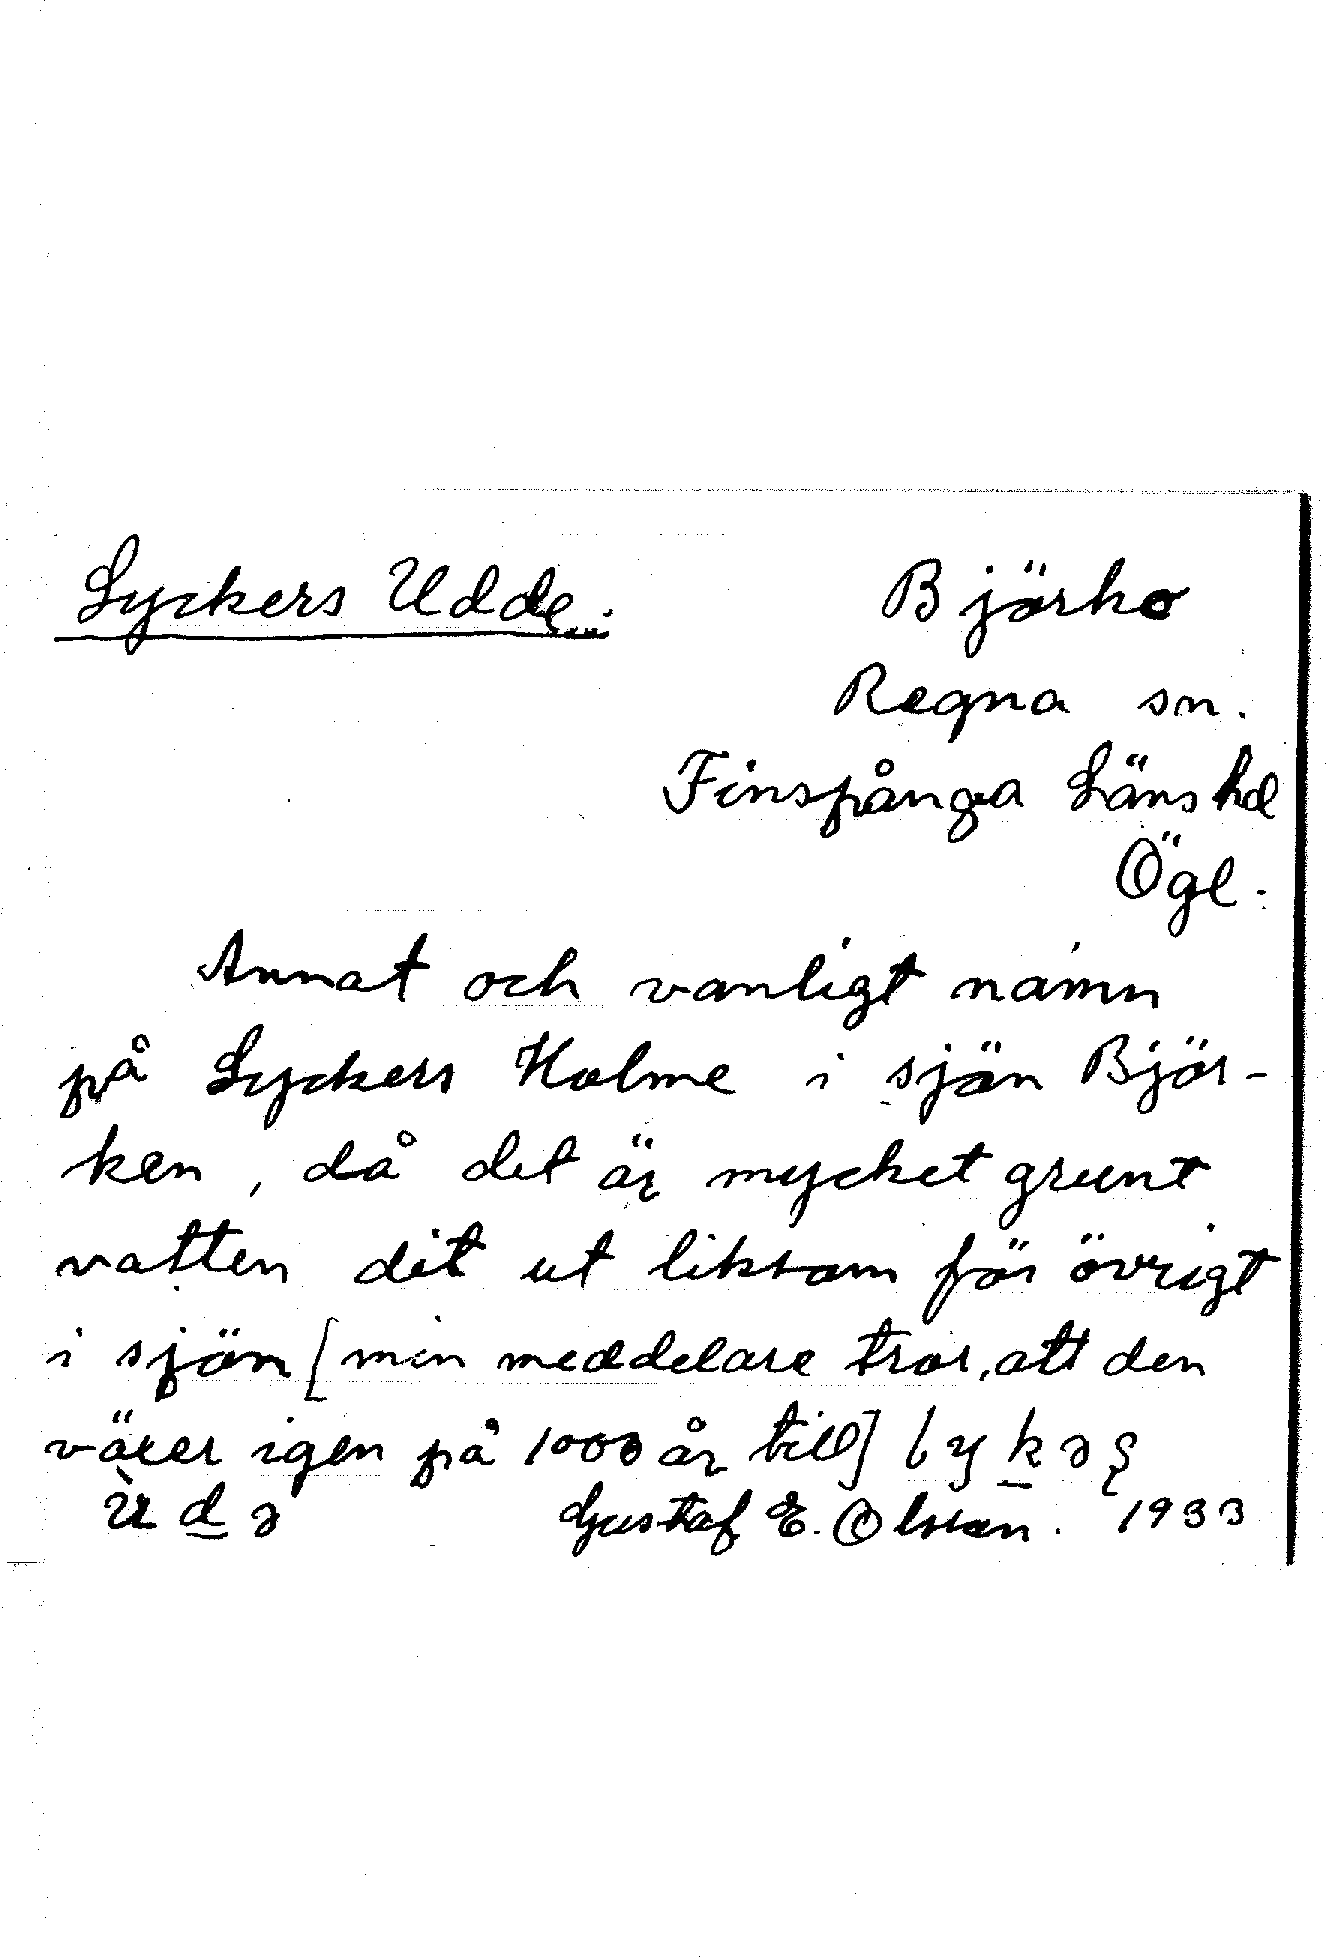 Lyckers Udde.
Björke
Regna sn.
Finspånga Läns hd
Ögl.
Annat och vanligt namn
på Lyckers Holme i sjön Björ-
ken, då det är mycket grunt
vatten dit ut liksom för övrigt
i sjön [min meddelare tror, att den
växer igen på 1000 år till]
Gustaf E. Olsson. 1933